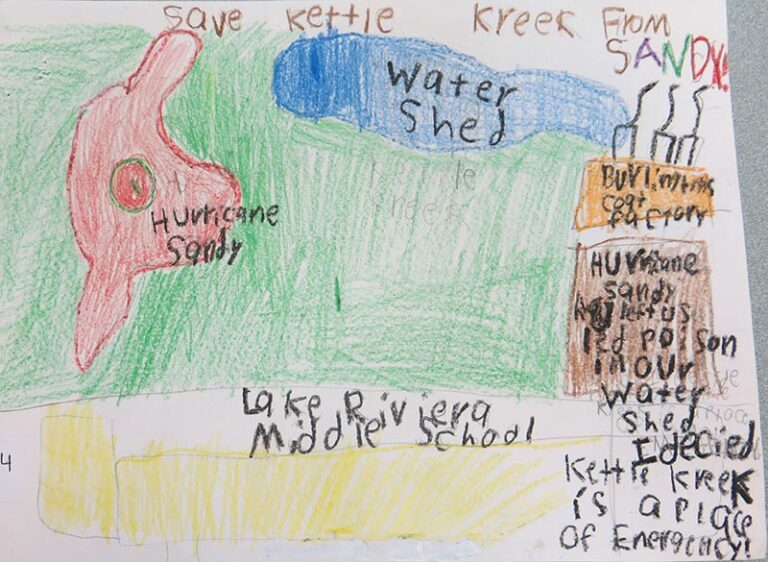 Save Kettle Kreek From
SANDY!
Water
Shed
Hurricane
Sandy
coat
factory
Hurricane
Sandy
left us
led poison
in our
water
shed
I decied
Kettle kreek
is a place
Of Energency!
Lake Riviera
Middle School
4